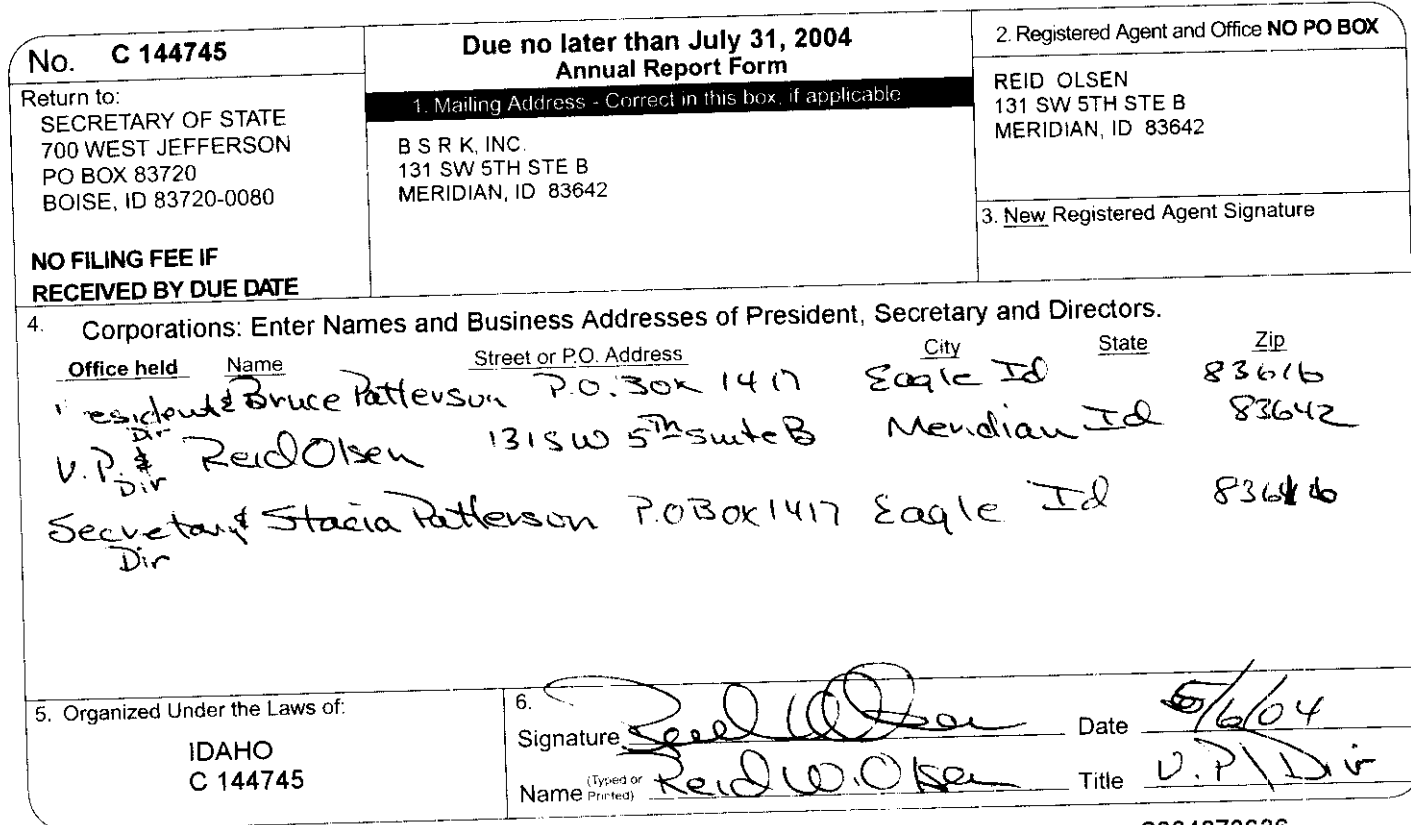 No. C 144745
Return to:
SECRETARY OF STATE
700 WEST JEFFERSON
PO BOX 83720
BOISE, ID 83720-0080
NO FILING FEE IF
RECEIVED BY DUE DATE
Due no later than July 31, 2004
Annual Report Form
1. Mailing Address - Correct in this box, if applicable
B S R K, INC.
131 SW 5TH STE B
MERIDIAN, ID 83642
2. Registered Agent and Office NO PO BOX
REID OLSEN
131 SW 5TH STE B
MERIDIAN, ID 83642
3. New Registered Agent Signature
4. Corporations: Enter Names and Business Addresses of President, Secretary and Directors.
Office held Name Street or P.O. Address City State Zip
President & Dir Bruce Patterson P.O. Box 1417 Eagle Id 83616
V.P. & Dir Reid Olsen 131 SW 5th Suite B Meridian Id 83642
Secretary & Stacia Patterson P.O Box 1417 Eagle Id 83616
Dir
5. Organized Under the Laws of:
IDAHO
C 144745
6.
Signature Reid W Olsen Date 5/6/04
Name (Typed or Printed) Reid W. Olsen Title V.P \ Dir